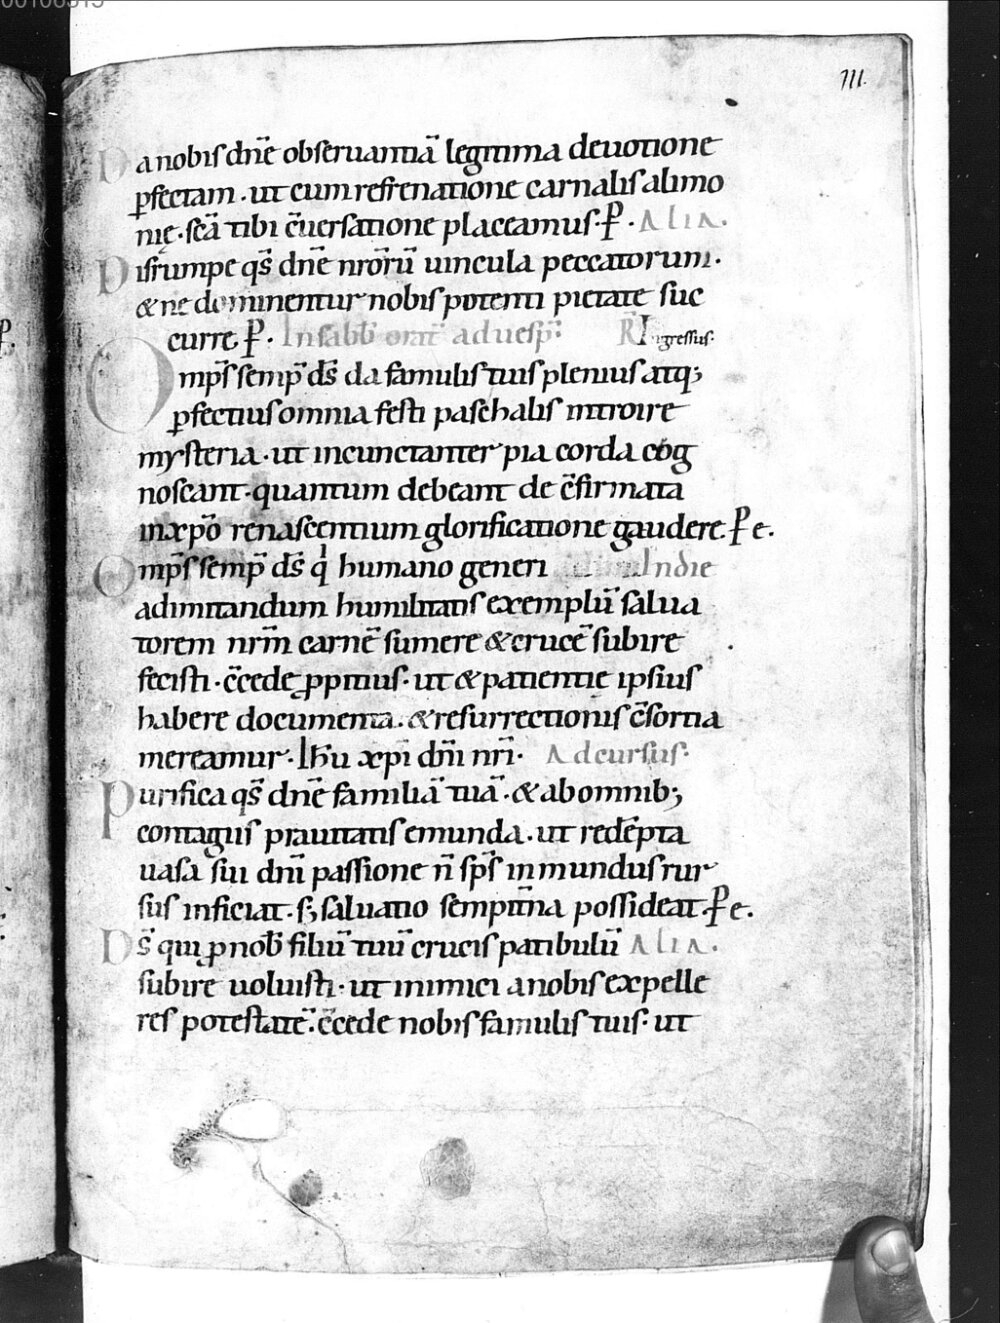 00106315
III.
Da nobis dñe obseruantiā legitima deuotione
ꝑfectam · ut cum refrenatione carnalis alimo
nię · scā tibi c̄uersatione placeamus · ꝑ · Alia.
Disrumpe qs̄ dñe nr̄oꝝū uincula peccatorum ·
& ne dominentur nobis potenti pietate suc
curre ꝑ · In sabb̄ orat̄ ad uesp̄:
Igressus ·
Omp̄s semp̄ ds̄ da famulis tuis plenius atq;
ꝑfectius omnia festi paschalis introire
mysteria · ut incunctanter pia corda cog
noscant · quantum debeant de c̄firmata
in xp̄o renascentium glorificatione gaudere. ꝑ e.
Omp̄s semp̄ ds̄ qͥ humano generi In die
ad imitandum humilitatis exemplū salua
torem nr̄m carnē sumere & crucē subire
fecisti · c̄cede ꝓpitius · ut & patientię ipsius
habere documenta · & resurrectionis c̄sortia
mereamur · Ihū xp̄i dn̄i nr̄i · Ad cursus ·
Purifica qs̄ dñe familiā tuā · & ab omnib;
contagiis prauitatis emunda · ut redēpta
uasa sui dn̄i passione n̄ sp̄s inmundus rur
sus inficiat · s; saluatio sempit̄na possideat. ꝑ e.
Ds̄ qui ꝓ nob̄ filiū tuū crucis patibulū Alia.
subire uoluisti · ut inimici a nobis expelle
res potestatē · c̄cede nobis famulis tuis · ut